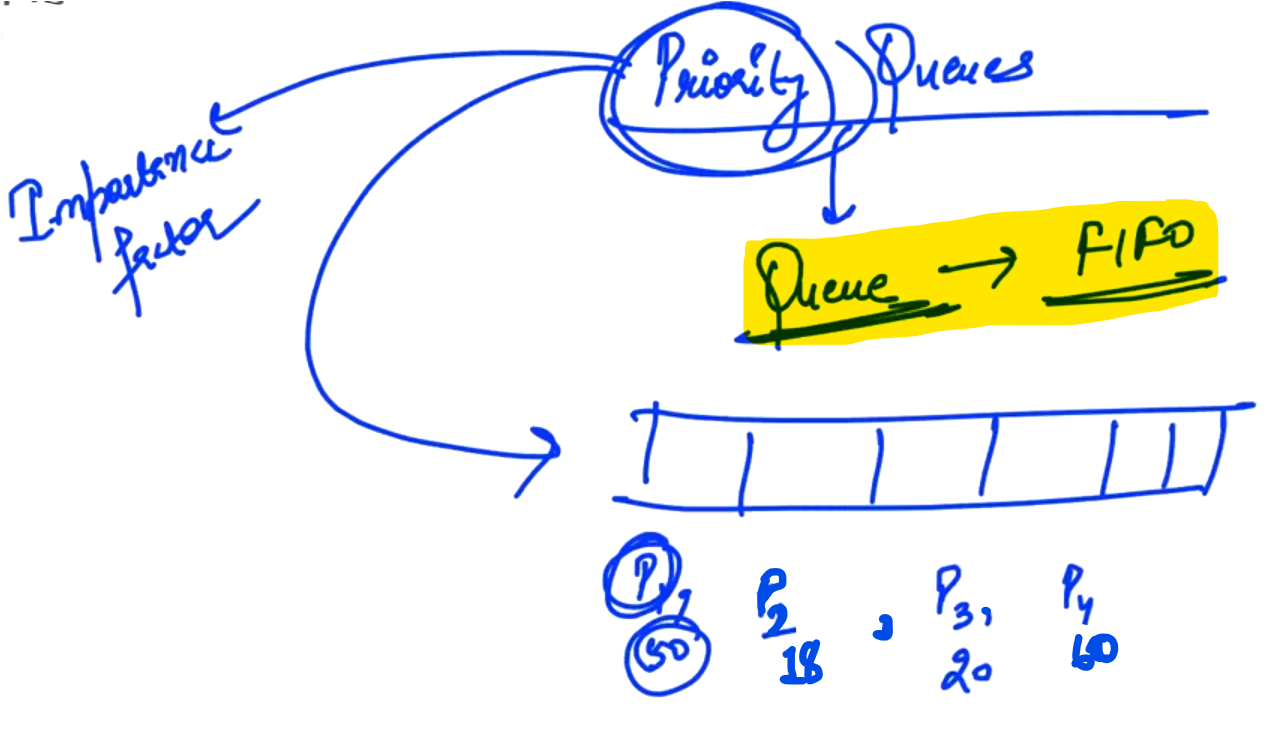 Priority Queues
Importance
factor
Queue → FIFO
P1, P2, P3, P4
50 18 20 60